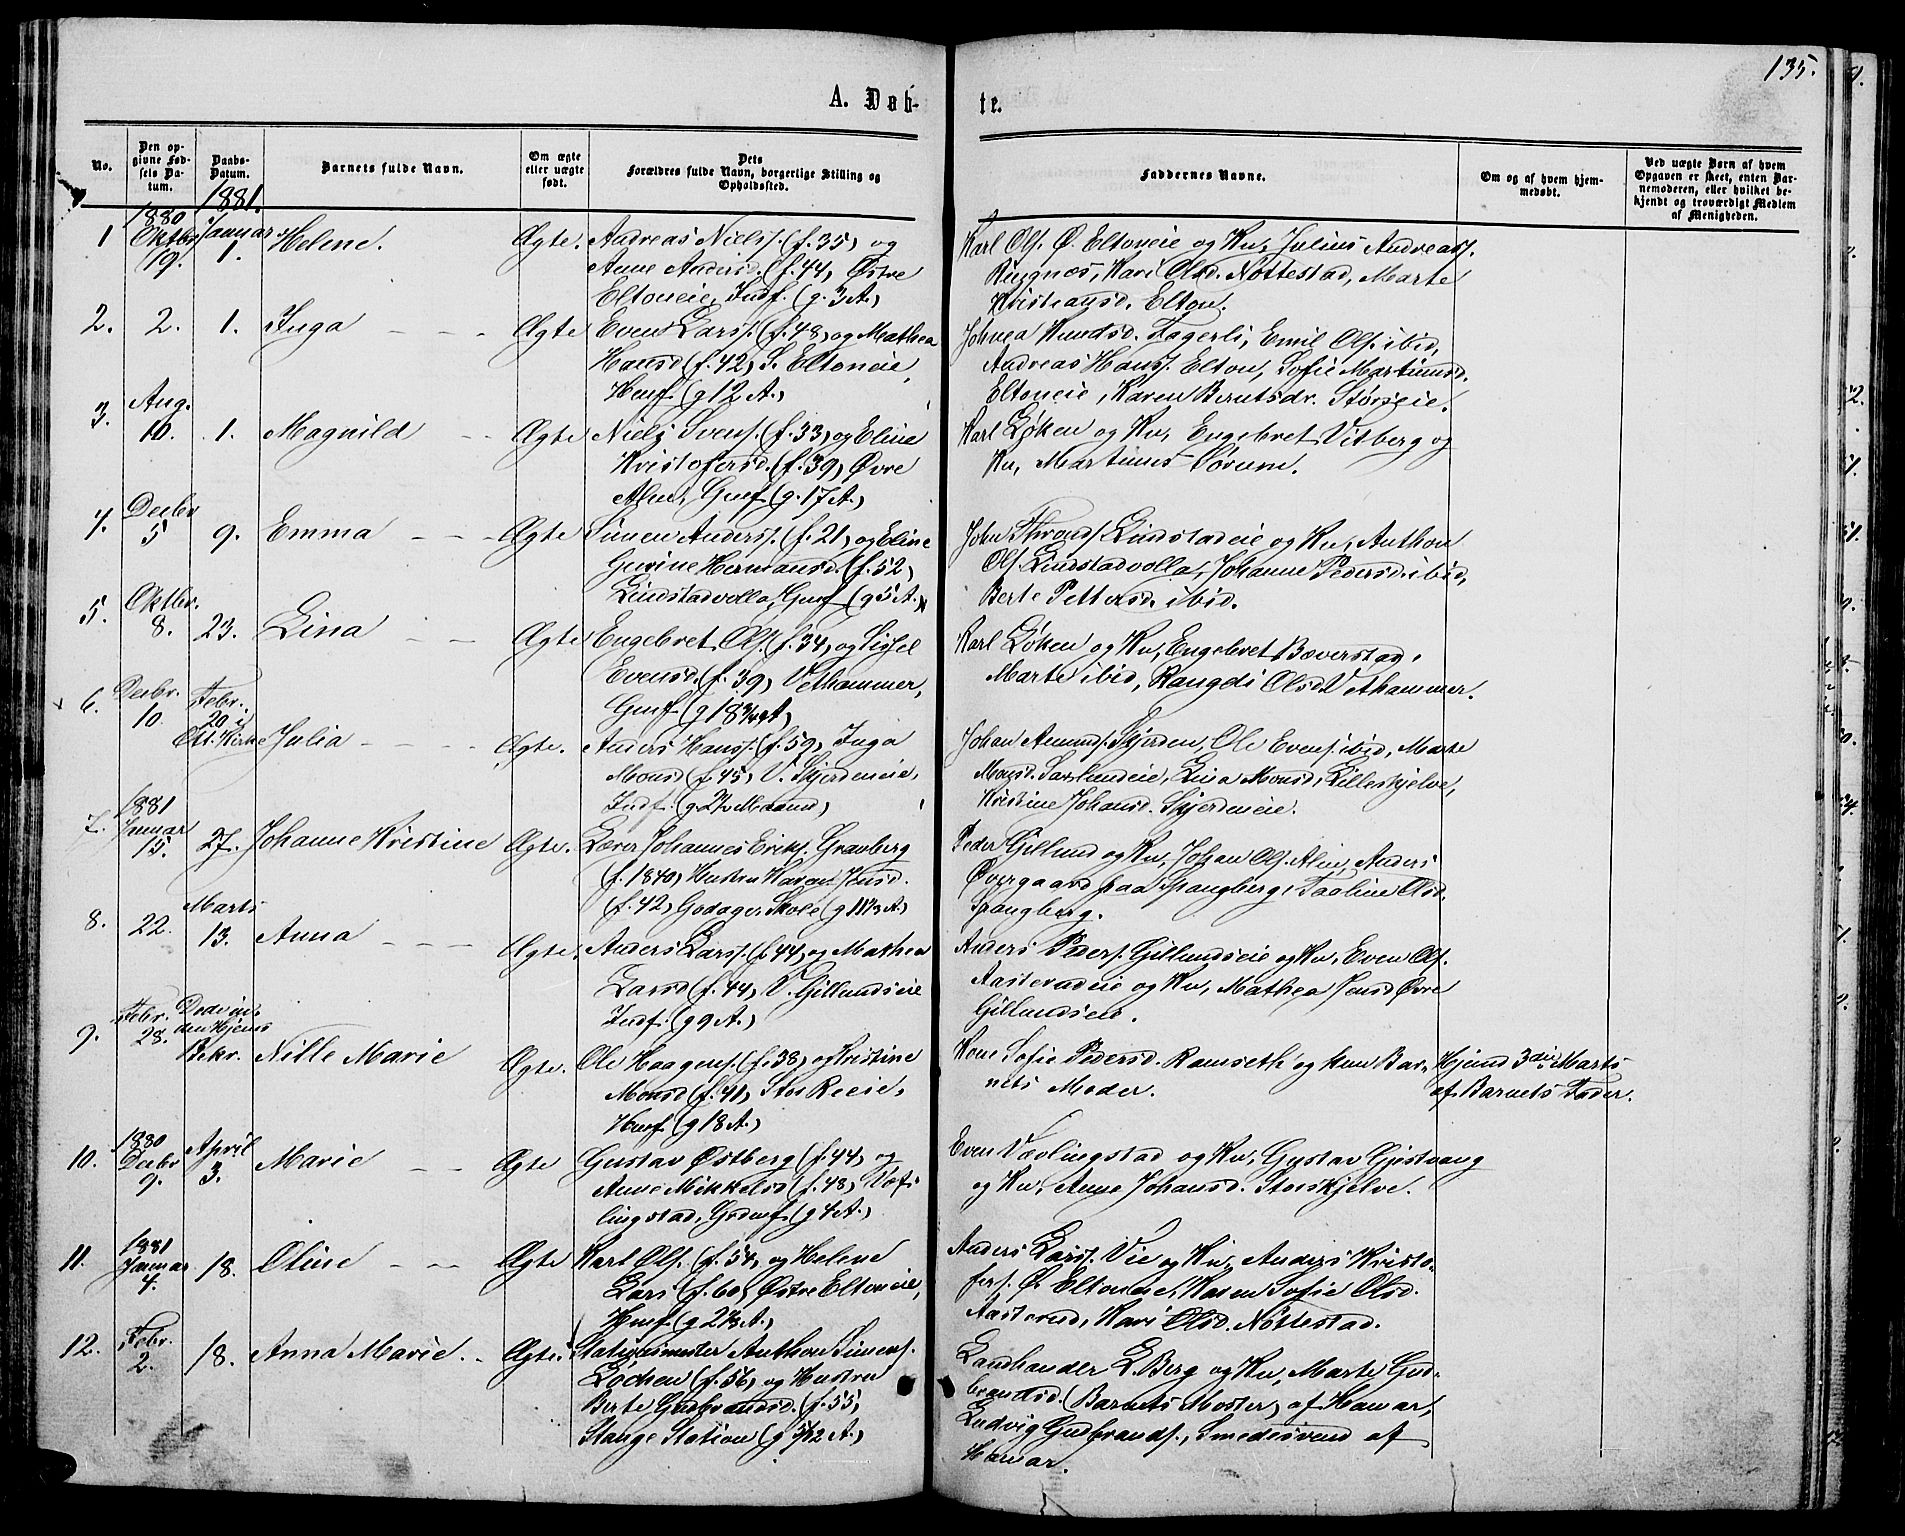 135.
A. Døb-
te.
No.
Den op-
givne Fød-
sels Da-
tum.
Daabs-
Datum.
Barnets fulde Navn.
Om ægte
eller uægte
født.
Dets
Forældres fulde Navn, borgerlige Stilling og
Opholdssted.
Faddernes Navne.
Om og af hvem hjem-
medøbt.
Ved uægte Børn af hvem
Opgaven er skeet, enten Bar-
nemoderen, eller hvilket be-
kjendt og troværdigt Medlem
af Menigheden.
1881.
1
1880
Oktbr
19.
Januar
1.
Helene.
Ægte.
Andreas Nielss. (f. 35) og
Anne Andersd. (f. 44) Østre
Eltoneie, Indf. (g. 3 A.)
Karl Ols. Ø. Eltoneie og Ku, Julius Andreass.
Ringnes, Kari Olsd. Nøttestad, Marte
Kristiansd. Elton.
2.
2.
1.
Inga
Ægte
Even Larss. (f. 48) og Mathea
Hansd (f. 42) S. Eltoneie,
Husf. (g 12 A.)
Johnea Knudsd. Fagerli, Emil Ols. ibid,
Andreas Hanss. Elton, Sofie Martinusd.
Eltoneie, Karen Berntsdr. Størseie.
3.
Aug.
10.
1.
Magnild
Ægte
Niels Svens. (f. 33) og Eline
Kristofersd. (f. 39) Øvre
Alm, Gmf. (g. 17 A.)
Karl Løken og Ku, Engebret Vitberg og
Ku, Martinus Sørum.
4.
Decbr
5
9.
Emma
Ægte
Simen Anderss. (f. 21) og Eline
Gurine Hermansd. (f. 52)
Lindstadvolla, Gmf. (g 5 A.)
John Thronds. Lindstadeie og Ku, Anthon
Ols. Lindstadvolla, Johanne Pedersd. ibid,
Berte Pettersd. ibid.
5.
Oktbr.
8.
23.
Lina
Ægte
Engebret Ols. (f. 34) og Sissel
Evensd. (f. 39) Vethammer,
Gmf. (g 18 3/4 A)
Karl Løken og Ku, Engebret Bæverstad,
Marte ibid, Rangdi Olsd. Vethammer.
6.
Decbr.
10.
Febr.
20 i
Ott. Kirke
Julia
Ægte.
Anders Hanss. (f. 59) Inga
Monsd (f. 45) V. Skjerdeneie,
Indf. (g 2 1/2 Maaned)
Johan Amunds. Skjerden, Ole Evens. ibid, Marte
Monsd. Saxlundeie, Lina Monsd. Lilleskjelve,
Kristine Johansd. Skjerdeneie.
7.
1881
Januar
15.
27.
Johanne Kristine
Ægte.
Lærer Johannes Eriks. Gravberg
(f. 1840) Hustru Karen Jensd.
(f. 42) Godager Skole (g 11 1/3 A.)
Peder Gillund og Ku, Johan Ols. Alm, Anders
Øvergaard paa Spangberg, Paoline Olsd.
Spangberg.
8.
22.
Marts
13.
Anna
Ægte.
Anders Larss. (f. 44) og Mathea
Larsd (f. 44) V. Gillundseie
Indf. (g 9 A.)
Anders Peders. Gillundseie og Ku, Even Ols.
Aasterudeie og Ku, Mathea Jensd Øvre
Gillundseie.
9.
Febr.
28.
Døde in-
den Hjems
Bekr.
Nille Marie
Ægte.
Ole Haagens. (f. 38) og Kristine
Monsd (f. 41) Stor Reeie,
Husf. (g 18 A.)
Kone Sofie Pedersd. Ramseth og kun Bar-
nets Moder.
Hjemd 3die Marts
af Barnets Fader.
10.
1880
Decbr
9.
April
3.
Marie
Ægte
Gustav Østberg (f. 44) og
Anne Mikkelsd (f. 48) Væf-
lingstad, Grdmf. (g 4 A.)
Even Vævlingstad og Ku, Gustav Gjestvang
og Ku, Anne Johansd. Storskjelve.
11.
1881
Januar
4.
18.
Oline
Ægte
Karl Ols. (f. 54) og Helene
Lars (f. 60) Østre Eltoneie,
Husf. (g 2 1/3 A.)
Anders Larss. Vie og Ku, Anders Kristo-
fers. Ø. Eltoneie, Karen Sofie Olsd.
Aasterud, Kari Olsd. Nøttestad.
12.
Febr.
2.
18.
Anna Marie.
Ægte
Stationsmester Anthon Simens.
Lochen (f. 56) og Hustru
Berte Gudbrandsd. (f. 55)
Stange Station (g 5/12 A.)
Landhander L. Berg og Ku, Marte Gud-
brandsd. (Barnets Moster) af Hamar,
Ludvig Gudbrands., Smedesvend af
Hamar.